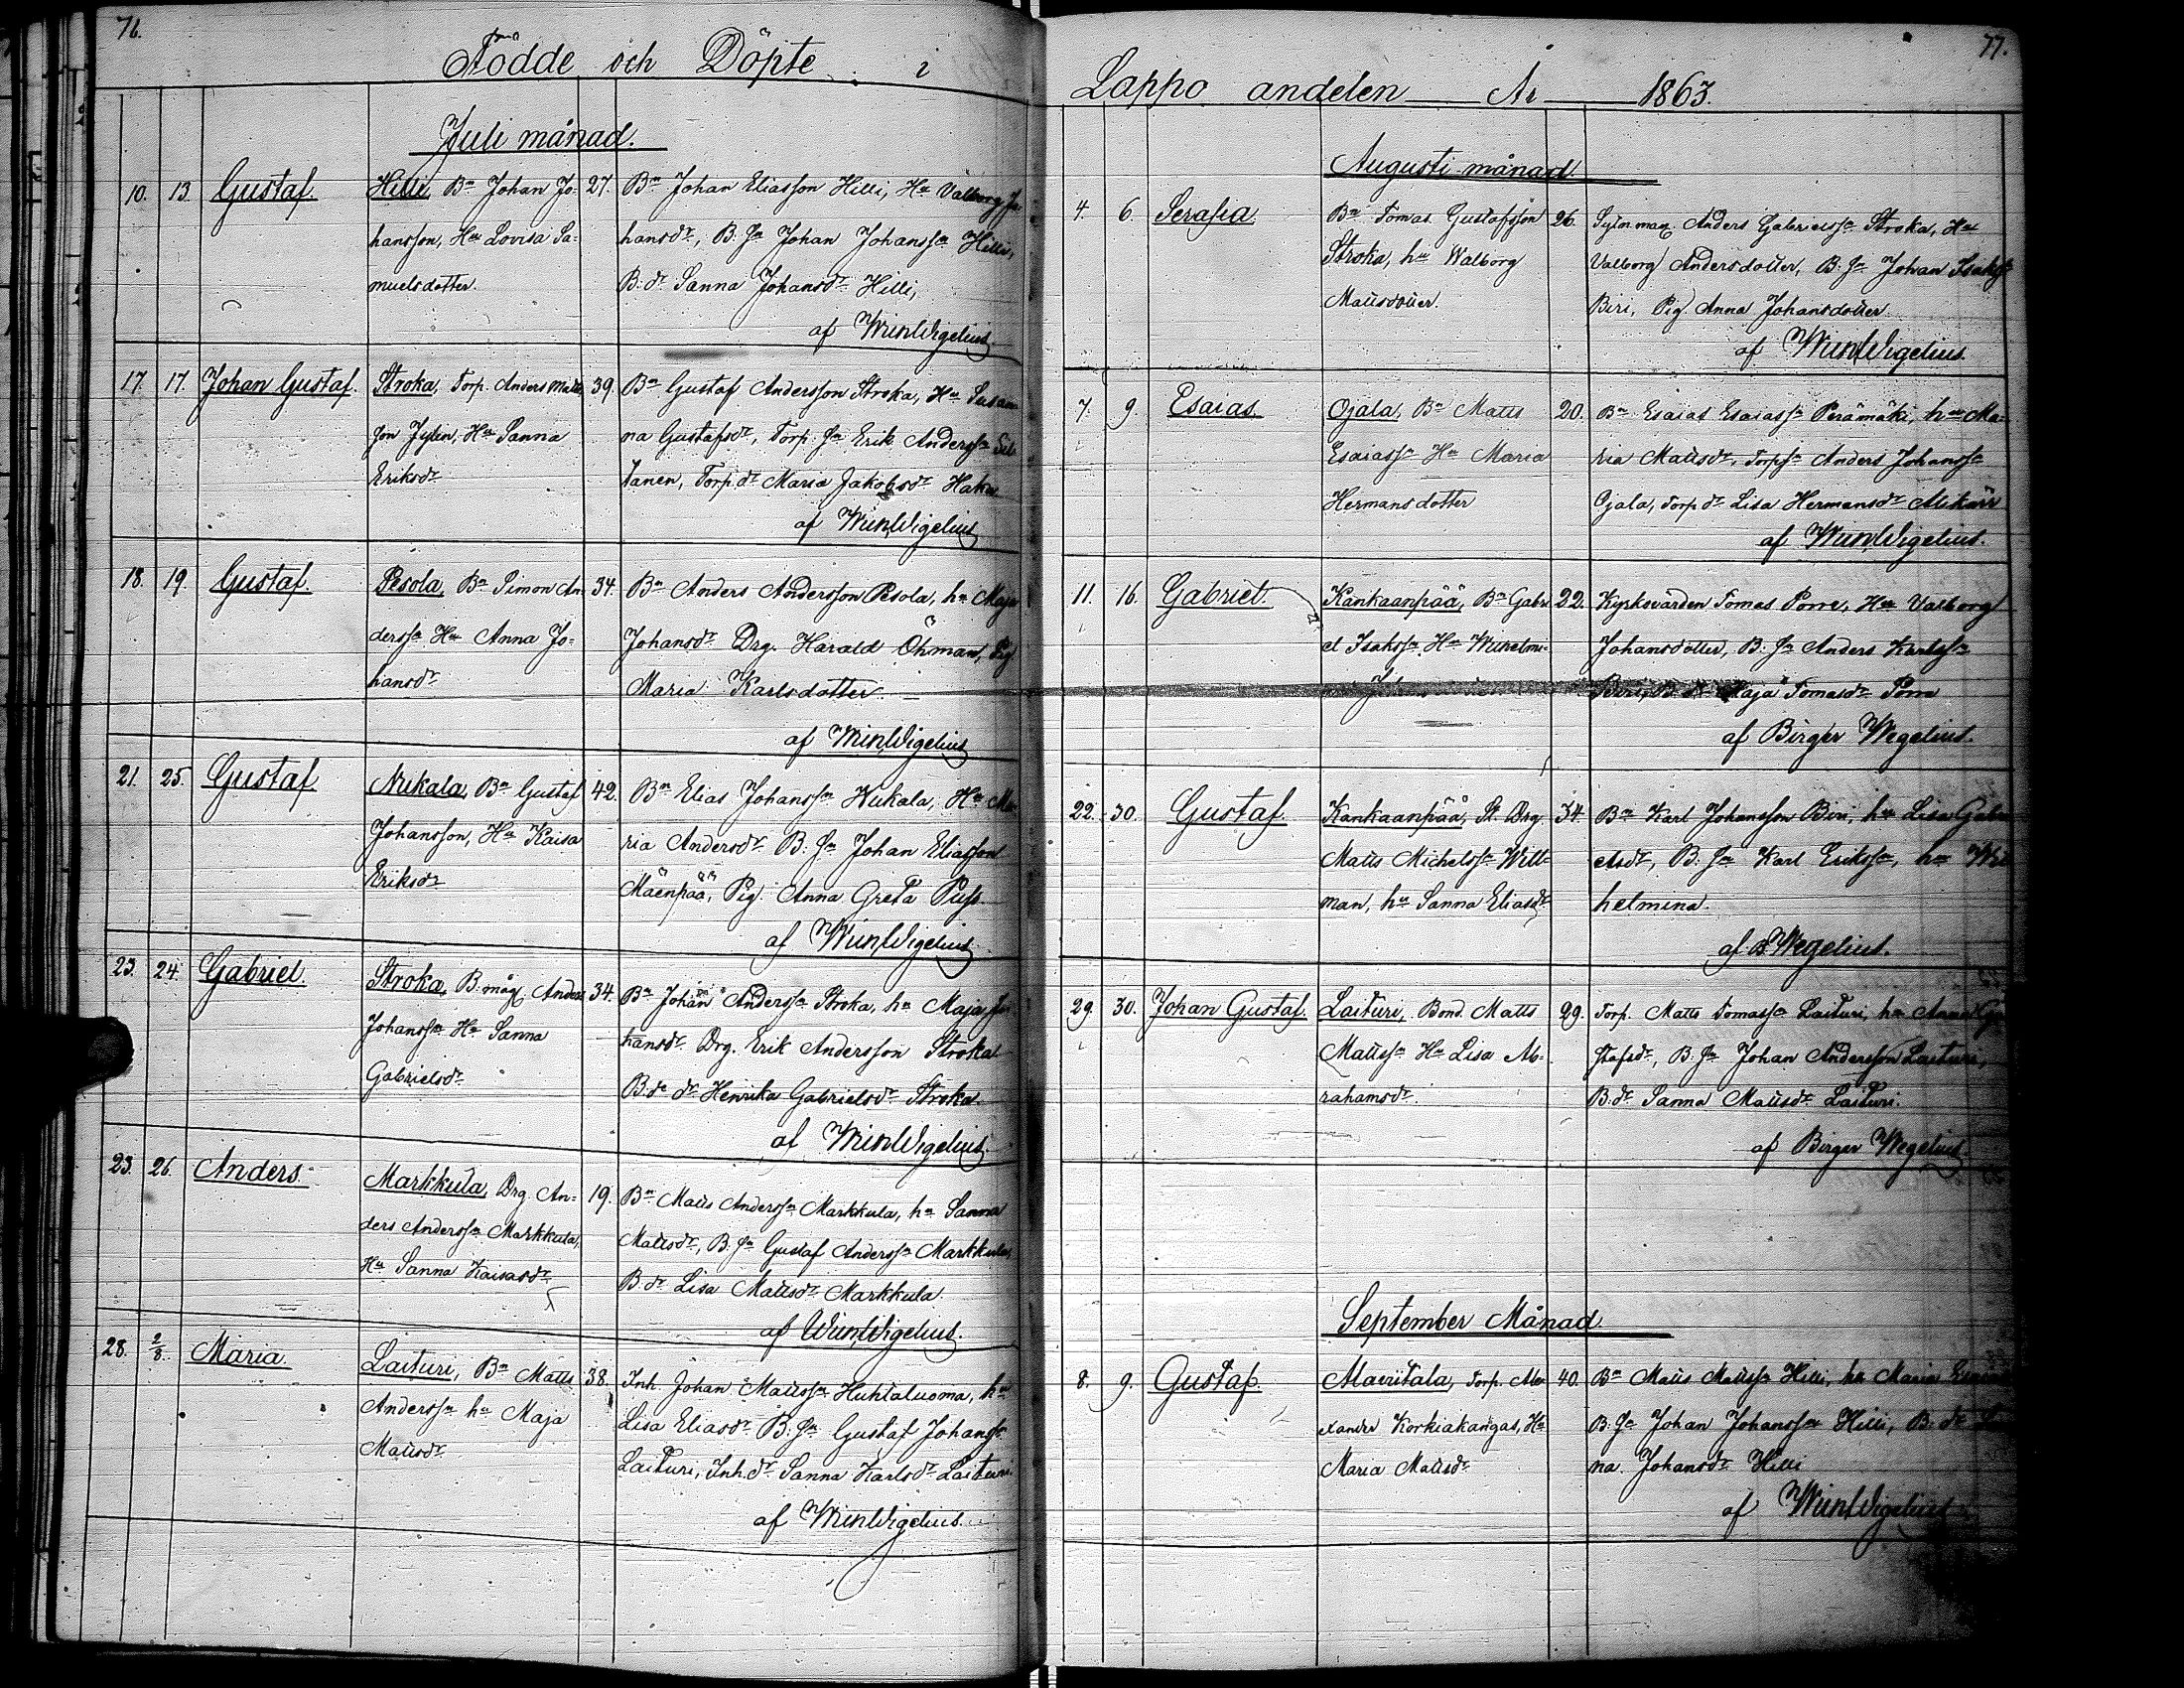 76.
Födde och Döpte i
Juli månad.
10. 13. Gustaf. Hilli, Bn Johan Jo= 27. Bn Johan Eliasson Hilli, Hu Valborg Jo
hansson, Hu Lovisa Sa= hansdr, B. Sn Johan Johanssn Hilli,
muelsdotter. B. dr Sanna Johansdr Hilli,
af
17. 17. Johan Gustaf. Stroka, Torp. Anders Matts 39. Bn Gustaf Andersson Stroka, Hu Susan
son Jylin, Hu Sanna na Gustafsdr, Torp. Sn Erik Anderssn Sil
Eriksdr tanen, Torp. dr Maria Jakobsdr Haka
af
18. 19. Gustaf. Pesola, Bn Simon An 34. Bn Anders Andersson Pesola, hu Maja
derssn Hu Anna Jo= Johansdr Drg. Harald Öhman, Pig.
hansdr Maria Karlsdotter
af
21. 25. Gustaf. Nukala, Bn Gustaf 42. Bn Elias Johanssn Nukala, Hu Ma
Johansson, Hu Kaisa ria Andersdr B. Sn Johan Eliasson
Eriksdr Mäenpää, Pig. Anna Greta
af
23. 24. Gabriel. Stroka, B. måg Anders 34. Bn Johan Anderssn Stroka, hu Maja Jo
Johanssn Hu Sanna hansdr Drg. Erik Andersson Stroka
Gabrielsdr B. de dr Henrika Gabrielsdr Stroka.
af
23. 26. Anders. Markkula, Drg. An= 19. Bn Matts Anderssn Markkula, hu Sanna
ders Anderssn Markkula, Mattsdr, B. Sn Gustaf Anderssn Markkula,
Hu Sanna Kaisasdr B. dr Lisa Mattsdr Markkula.
af
28. 2/8. Maria. Laituri, Bn Matts 38. Inh. Johan Mattssn Huhtaluoma, hu
Anderssn hu Maja Lisa Eliasdr B. Sn Gustaf Johanssn
Mattsdr Laituri, Inh. dr Sanna Karlsdr Laituri.
af
77.
Lappo andelen År 1863.
Augusti månad.
4. 6. Serafia. Bn Tomas Gustafsson 26. Sytn.man Anders Gabrielssn Stroka, Hu
Stroka, hu Walborg Valborg Andersdotter, B. Sn Johan Isakssn
Mattsdotter. Biri, Pig. Anna Johansdotter
af
7. 9. Esaias. Ojala, Bn Matts 20. Bn Esaias Esaiassn Perämäki, hu Ma
Esaiassn Hu Maria ria Mattsdr, Torpsn Anders Johanssn
Hermansdotter Ojala, Torp dr Lisa Hermansdr
af
11. 16. Gabriel. Kankaanpää, Bn Gabri 22. Kyrkovärden Tomas Porre, Hu Valborg
el Isakssn Hu Wilhelmi- Johansdotter, B. Sn Anders Karlssn
Biri, B. dr Maja Tomasdr Porre
af Birger Wegelius.
22. 30. Gustaf. Kankaanpää, St. Drg. 34. Bn Karl Johansson Biri, hu Lisa Gabri
Matts Michelssn Will= elsdr, B. Sn Karl Erikssn, hu Wil
man, hu Sanna Eliasdr helmina.
af B Wegelius.
29. 30. Johan Gustaf. Laituri, Bond. Matts 29. Torp. Matts Tomassn Laituri, hu Anna Gu
Mattssn Hu Lisa Ab= stafsdr, B. Sn Johan Andersson Laituri,
rahamsdr. B. dr Sanna Mattsdr Laituri.
af Birger Wegelius.
September Månad.
8. 9. Gustaf. Mauritala, Torp. Al= 40. Bn Matts Mattssn Hilli, hu Maria
exander Korkiakangas, Hu B. Sn Johan Johanssn Hilli, B. dr
Maria Mattsdr na Johansdr Hilli
af